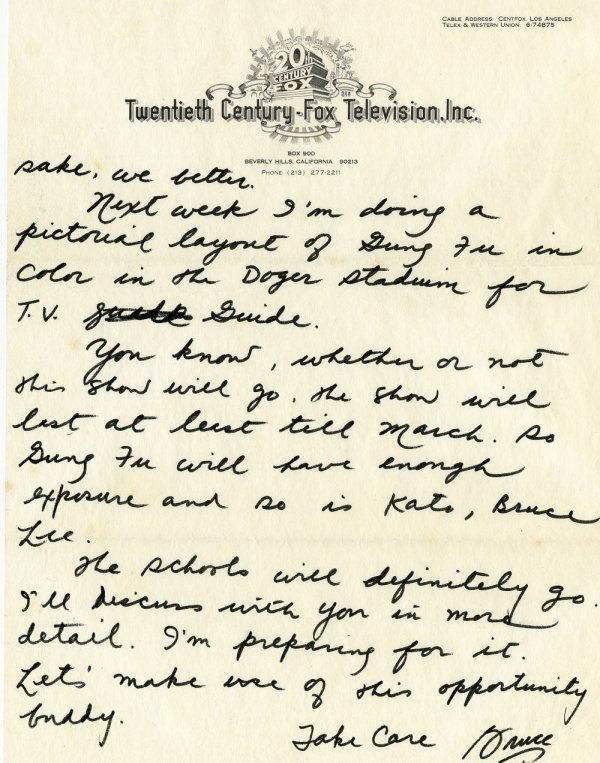 CABLE ADDRESS: CENTFOX, LOS ANGELES
TELEX & WESTERN UNION 6-74875
20th
CENTURY
FOX
Twentieth Century-Fox Television, Inc.
BOX 900
BEVERLY HILLS, CALIFORNIA 90213
PHONE (213) 277-2211
sake, we better.
Next week I'm doing a
pictorial layout of Gung Fu in
color in the Doger stadium for
T.V. Guide.
You know, whether or not
this show will go, the show will
last at least till march. So
Gung Fu will have enough
exposure and so is Kato, Bruce
Lee.
The schools will definitely go.
I'll discuss with you in more
detail. I'm preparing for it.
Let's make use of this opportunity
buddy.
Take Care Bruce